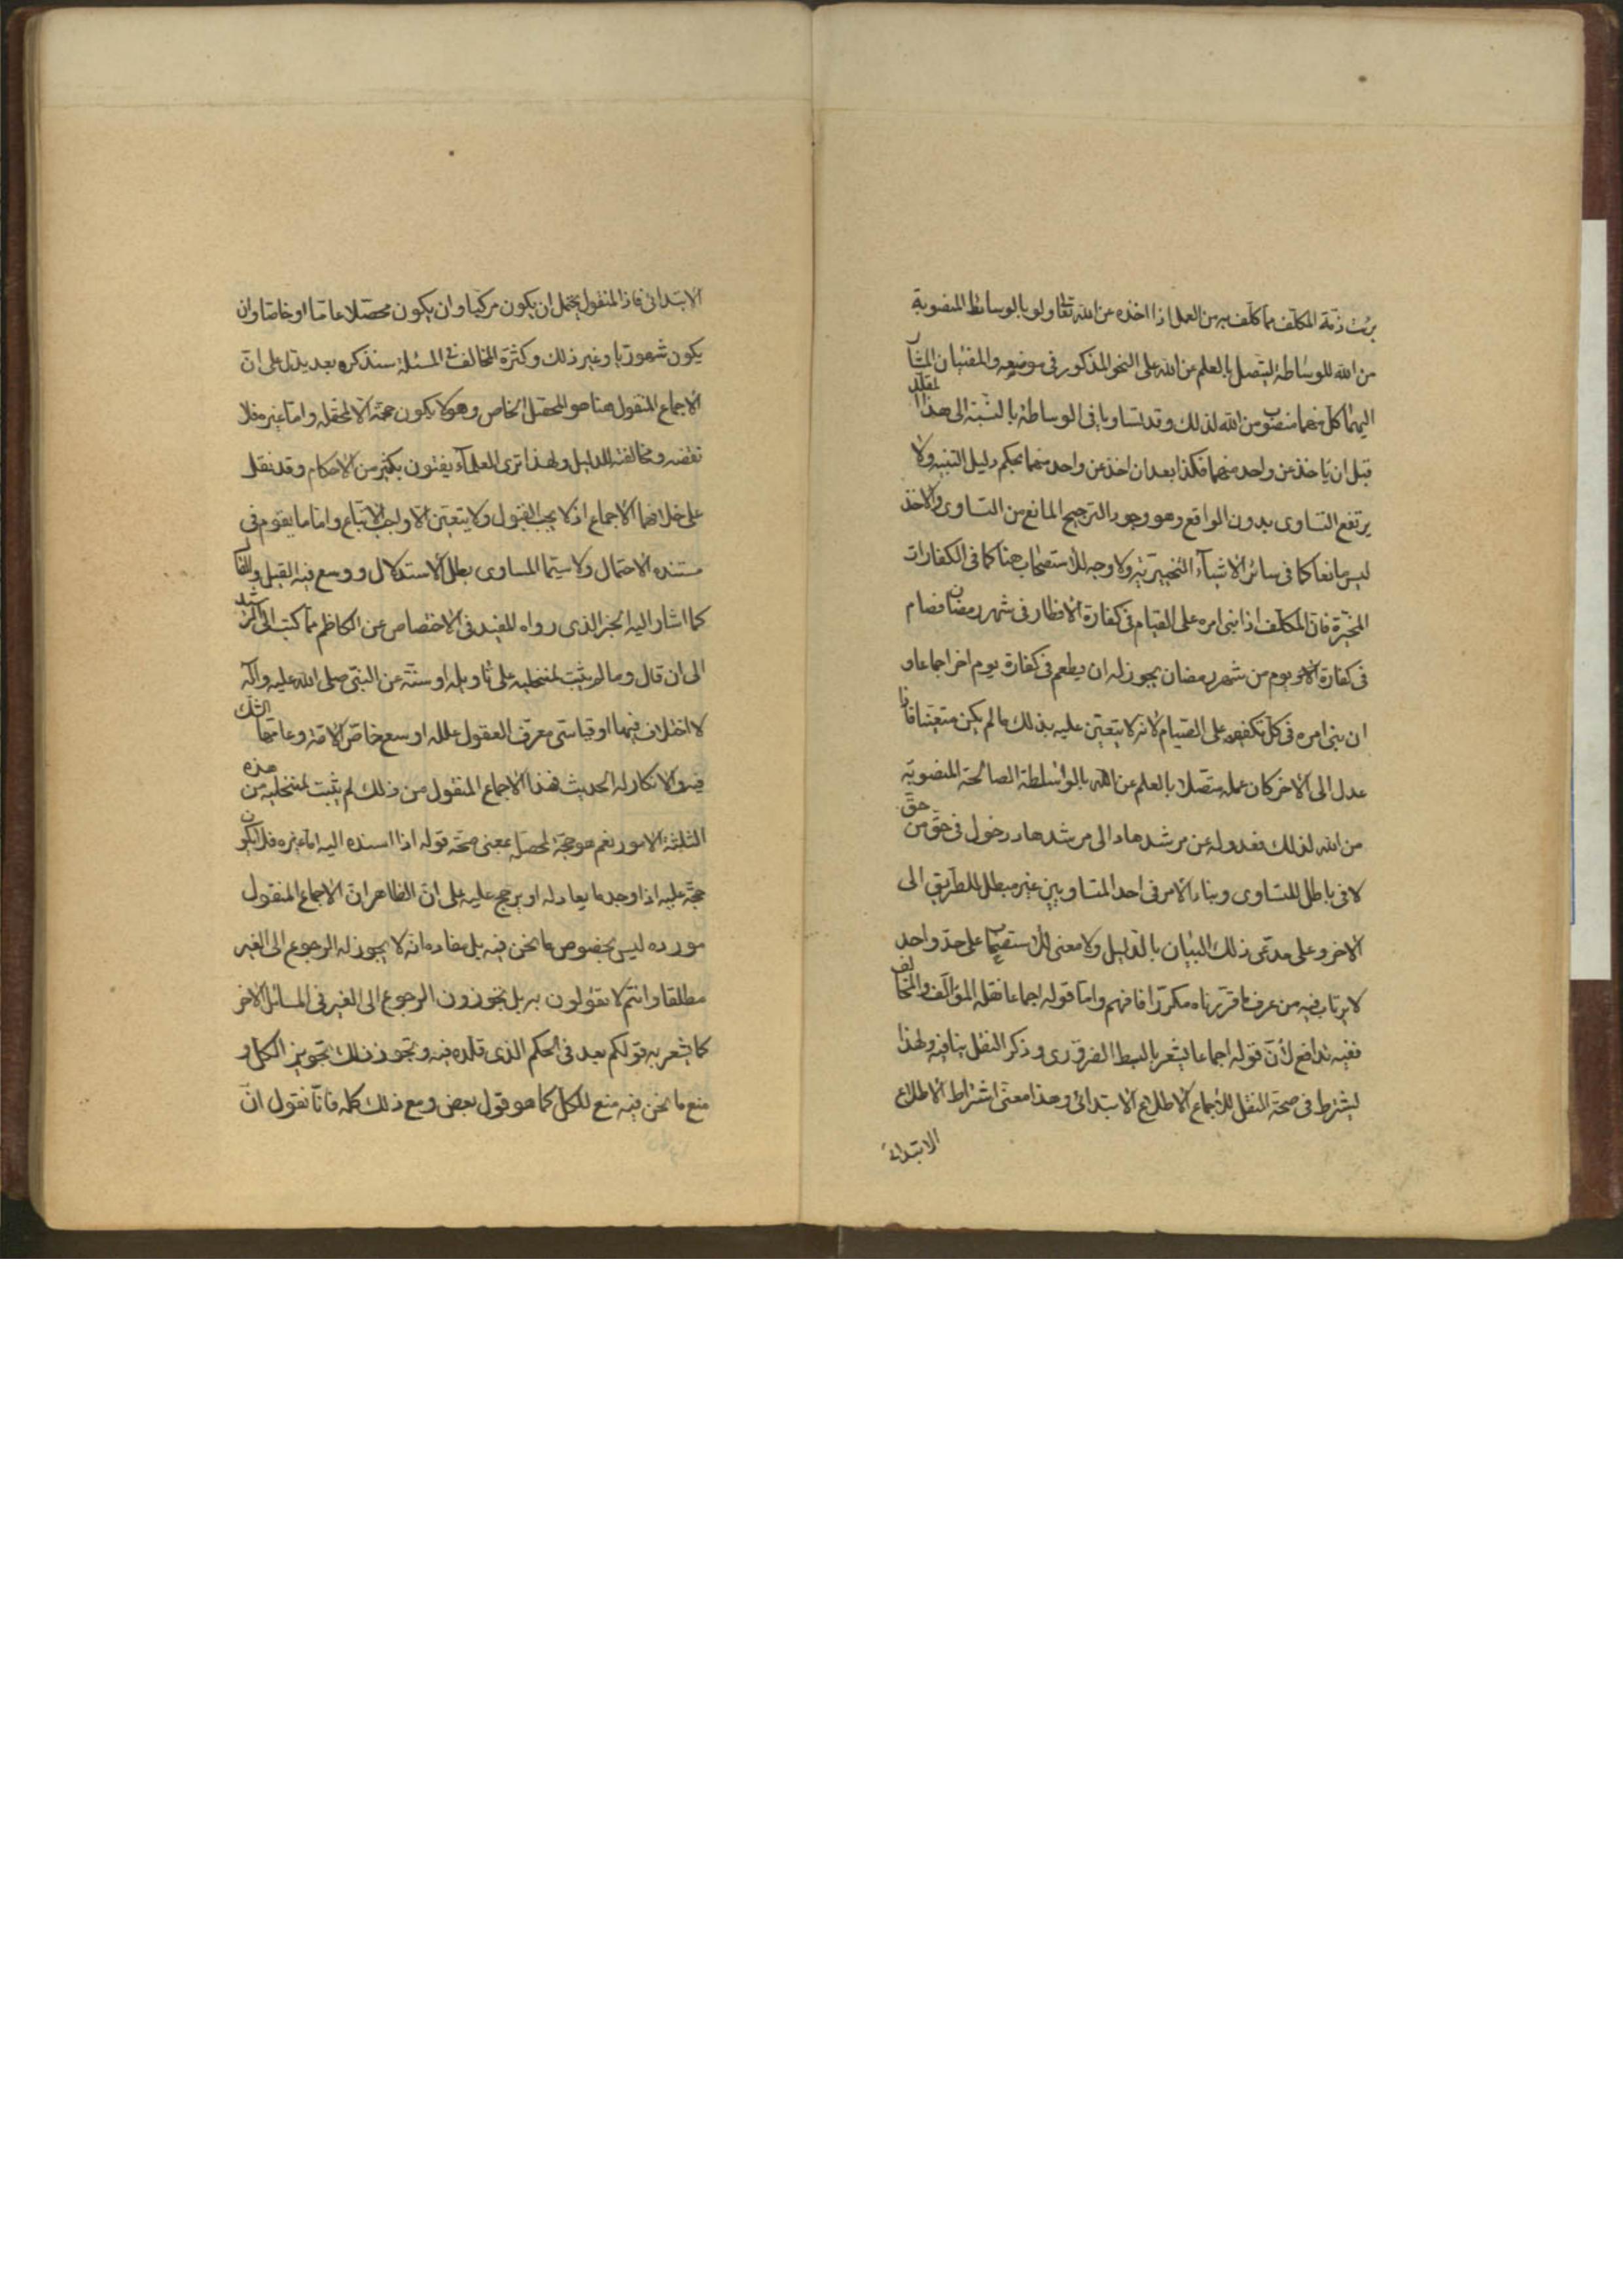 برئت ذمة المكلف مما كلف به من العمل اذا اخذه عن الله تعالى ولو بالوسائط المنصوبة
من الله للوساطة ليتصل بالعلم عن الله على النحو المذكور في موضعه والمفتيان المشار
اليهما كل منهما منصوب من الله لذلك وقد تساويا في الوساطة بالنسبة الى هذا المقلد
قبل ان ياخذ عن واحد منهما فكذا بعد ان اخذ عن واحد منهما بحكم دليل التنبيه ولا
يرتفع التساوى بدون الواقع وهو وجود الترجيح المانع من التساوى والاخذ
ليس مانعا كما في سائر الاشياء التخييرية ولا وجه للاستصحاب هنا كما في الكفارات
المخيرة فان المكلف اذا بنى امره على القيام في كفارة الافطار في شهر رمضان فصام
في كفارة يوم من شهر رمضان يجوز له ان يطعم في كفارة يوم اخر اجماعا و
ان بنى امره في كل تكفير على الصيام لانه لا يتعين عليه بذلك ما لم يكن متعينا فان
عدل الى الاخر كان عمله متصلا بالعلم عن الله بالواسطة الصالحة المنصوبة
من الله لذلك فعدوله عن مرشدها الى مرشدها دخول في حق من حق
لا في باطل للتساوى وبناء الامر في احد المتساويين غير مبطل للطريق الى
الاخر وعلى مدعى ذلك البيان بالدليل ولا معنى للاستصحاب على حد واحد
لا يرتاب فيه من عرف ما قررناه مكررا فافهم واما قوله اجماعا نقله المؤالف والمخالف
ففيه تدافع لأن قوله اجماعا يشعر بالبسط الضرورى وذكر النقل ينافيه ولهذا
يشترط في صحة النقل للاجماع الاطلاع الابتدائى وهذا معنى اشتراط الاطلاع
الابتدائى
الابتدائى فاذ المنقول يحتمل ان يكون مركبا وان يكون محصلا عاما او خاصا وان
يكون شهوريا وغير ذلك وكثرة المخالف في المسئلة سنذكره بعد يدل على ان
الاجماع المنقول هنا هو المحصل الخاص وهو لا يكون حجة الا لمحصله واما غيره فلا
نقضه ومخالفته للدليل ولهذا ترى العلمآء يفتون بكثير من الاحكام وقد نقل
على خلافهما الاجماع اذ لا يجب القبول ولا يتعين الا واجب الاتباع واما ما يقوم في
مستنده الاحتمال ولا سيما المساوى بطل الاستدلال ووسع فيه القيل والقال
كما اشار اليه الخبر الذى رواه المفيد في الاختصاص عن الكاظم مما كتب الى الرشيد
الى ان قال وما لم يثبت لمنتحليه على تاويله او سنة عن النبى صلى الله عليه وآله
لا اختلاف فيها او قياس تعرف العقول عدله او سع خاص الامة وعامتها الشك
فيه والانكار له الحديث فهذا الاجماع المنقول من ذلك لم يثبت لمنتحليه من هذه
الثلثة الامور نعم هو حجة لمحصله بمعنى صحة قوله اذا اسنده اليه اما غيره فلا يكون
حجة عليه اذا وجد ما يعادله او يرجح عليه على ان الظاهر ان الاجماع المنقول
مورده ليس بخصوص ما نحن فيه بل مفاده انه لا يجوز له الرجوع الى الغير
مطلقا وانتم لا تقولون به بل تجوزون الرجوع الى الغير في المسائل الاخر
كما يشعر به قولكم بعد في الحكم الذى قلده فيه وتجوز ذلك تجويز الكل و
منع ما نحن فيه منع للكل كما هو قول بعض ومع ذلك كله فانا نقول ان